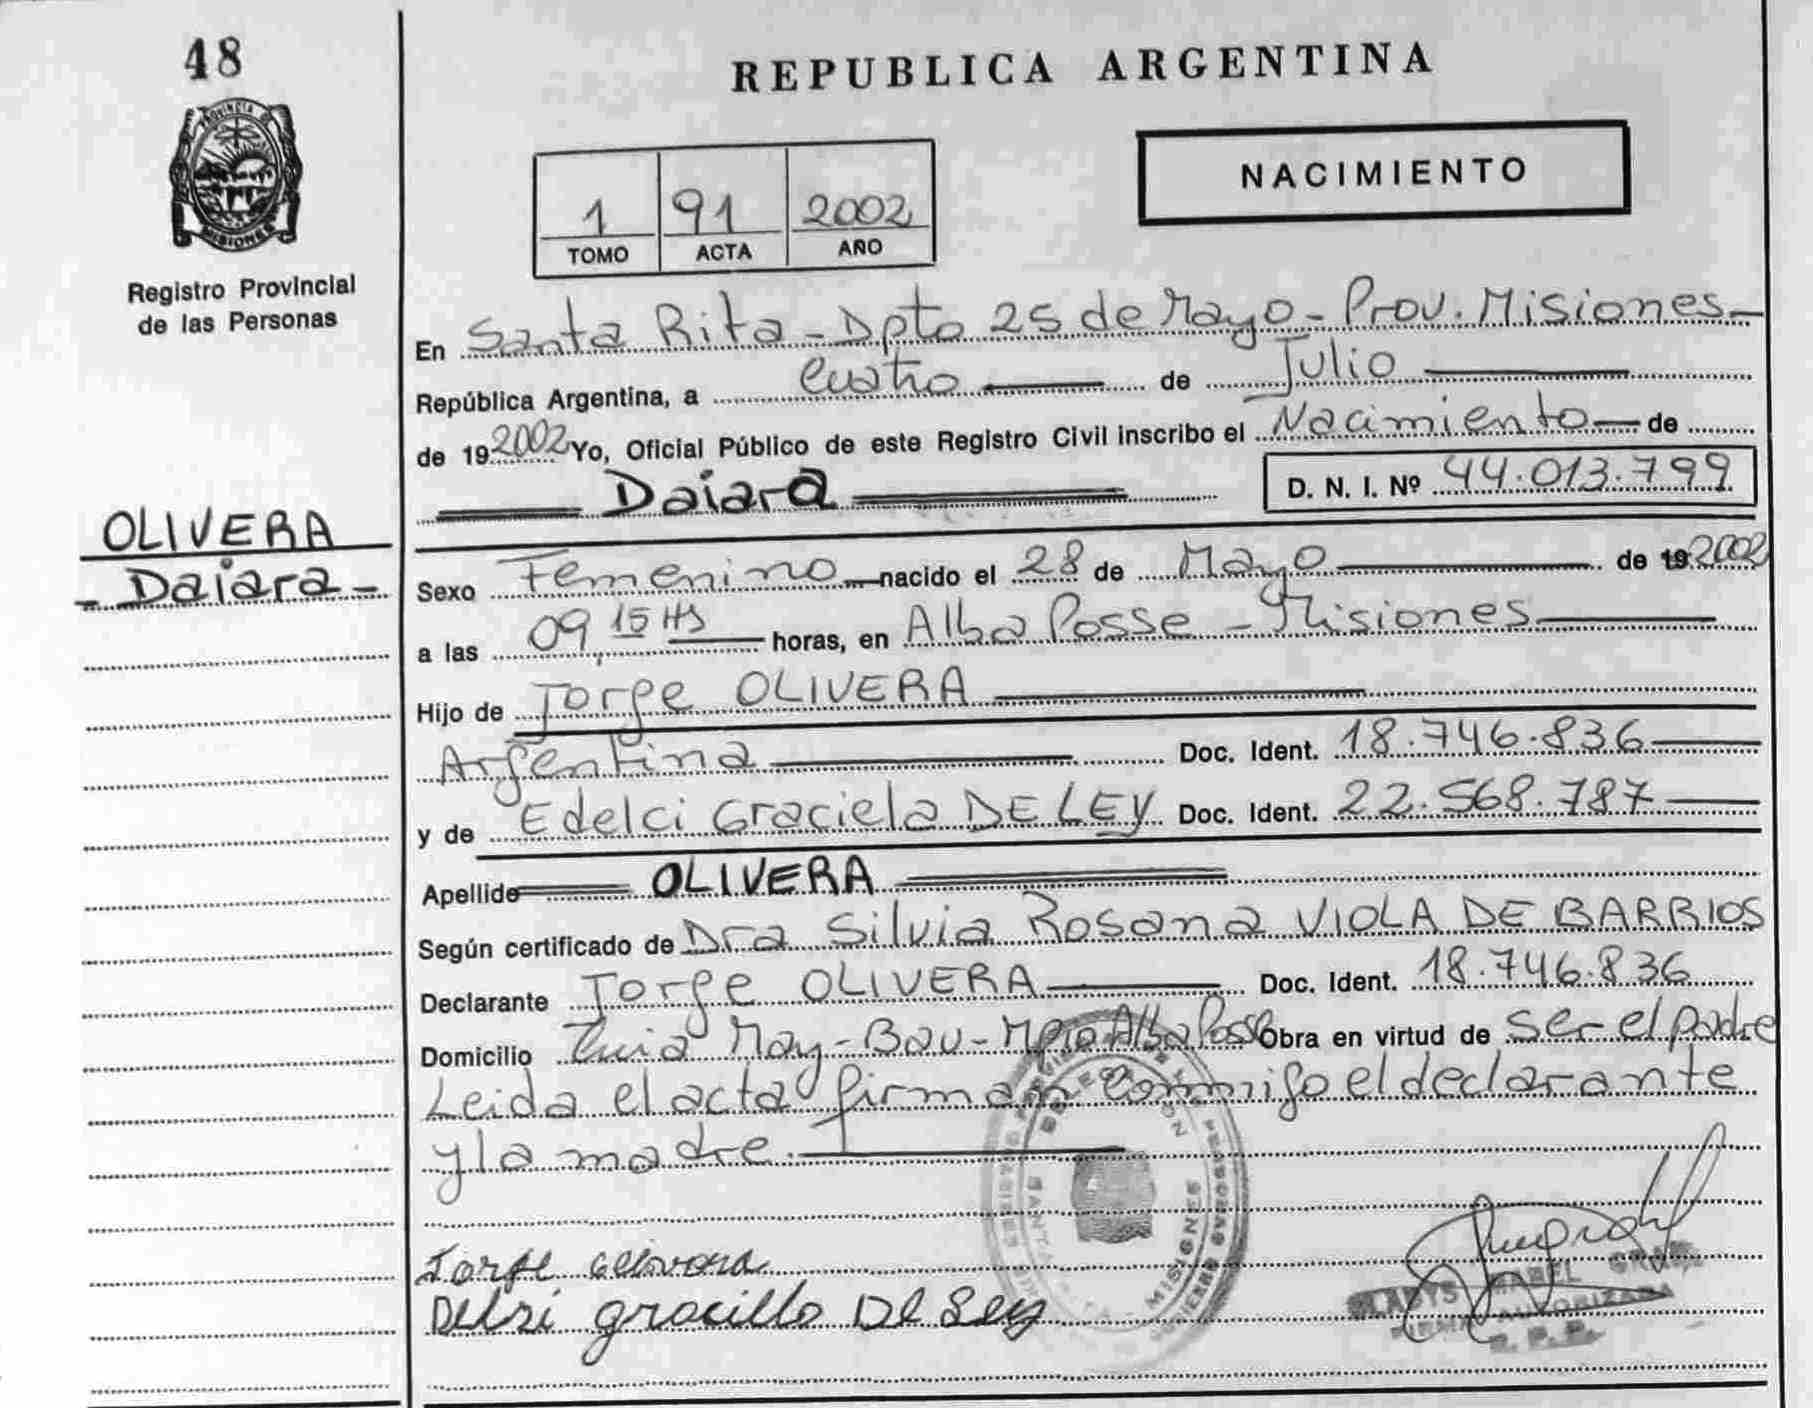 48
PROVINCIA DE
MISIONES
Registro Provincial
de las Personas
OLIVERA
- Daiara -
REPUBLICA ARGENTINA
NACIMIENTO
1 91 2002
TOMO ACTA AÑO
En Santa Rita - Dpto 25 de Mayo - Prov. Misiones -
República Argentina, a Cuatro de Julio
de 19 2002 Yo, Oficial Público de este Registro Civil inscribo el Nacimiento de
Daiara D. N. I. Nº 44.013.799
Sexo Femenino nacido el 28 de Mayo de 19 2002
a las 09,15 Hs horas, en Alba Posse - Misiones
Hijo de Jorge OLIVERA
Argentina Doc. Ident. 18.746.836
y de Edelci Graciela DE LEY Doc. Ident. 22.568.787
Apellido OLIVERA
Según certificado de Dra Silvia Rosana VIOLA DE BARRIOS
Declarante Jorge OLIVERA Doc. Ident. 18.746.836
Domicilio May - Bau - Mpio Alba Posse Obra en virtud de Ser el padre
Leida el acta firman conmigo el declarante
y la madre.
MISIONES
Jorge
Delsi gracillo De Ley
GLADYS MABEL
FIRMA AUTORIZADA
R. P. P.